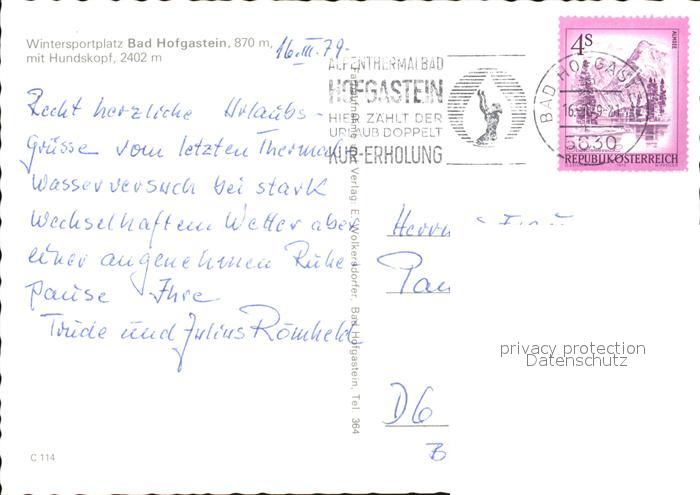 Wintersportplatz Bad Hofgastein, 870 m,
mit Hundskopf, 2402 m
16.III.79.
Recht herzliche Urlaubs-
grüsse vom letzten Thermal
wasserversuch bei stark
wechselhaftem Wetter aber
einer angenehmen Ruhe
pause Ihre
Trude und Julius Römheld
C 114
Verlag: E. Wolkersdorfer, Bad Hofgastein, Tel. 364
ALPENTHERMALBAD
HOFGASTEIN
HIER ZÄHLT DER
URLAUB DOPPELT
KUR-ERHOLUNG
BAD HOFGAST
5630
4S
ALMSEE
REPUBLIK ÖSTERREICH
Herrn
D6
privacy protection
Datenschutz